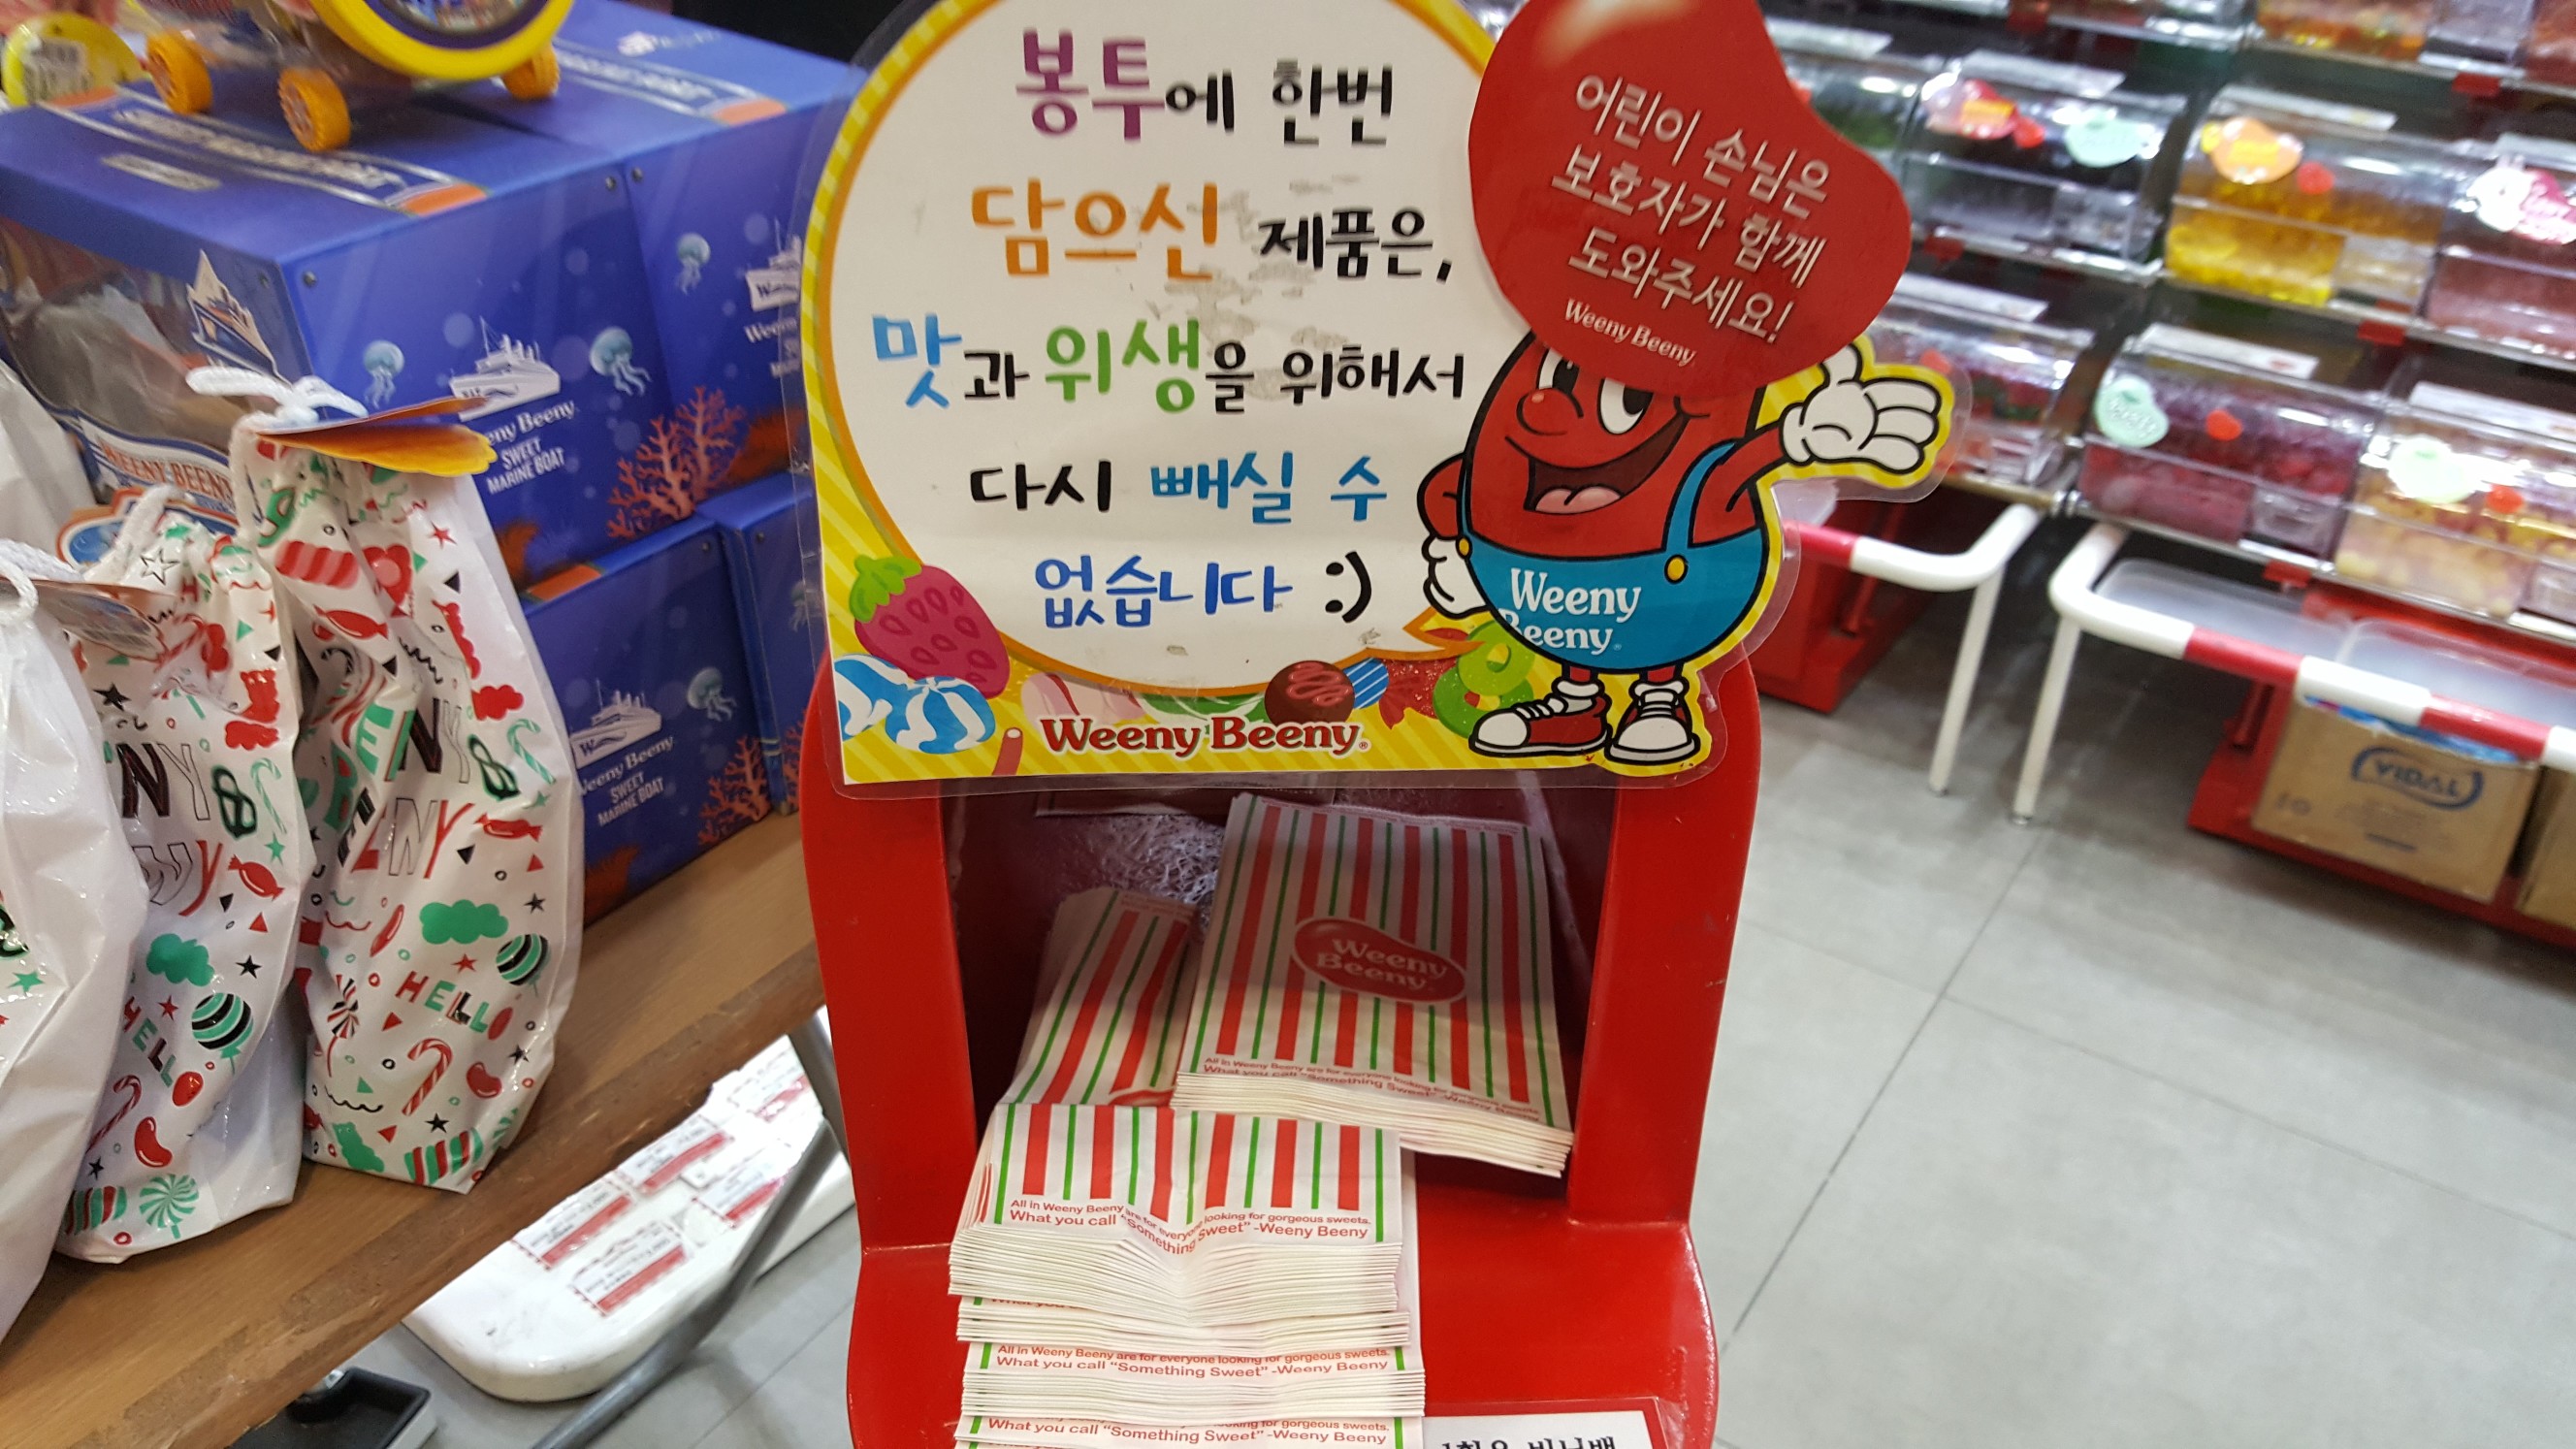 봉투에 한번
담으신 제품은,
맛과 위생을 위해서
다시 빼실 수
없습니다 :)
Weeny Beeny
어린이 손님은
보호자가 함께
도와주세요!
Weeny Beeny
Weeny
Beeny
Weeny Beeny
SWEET
MARINE BOAT
Weeny Beeny
SWEET
MARINE BOAT
WEENY BEENY
HELLO
HELLO
VIDAL
Weeny
Beeny
All in Weeny Beeny are for everyone looking for gorgeous sweets.
What you call "Something Sweet" -Weeny Beeny
All in Weeny Beeny are for everyone looking for gorgeous sweets.
What you call "Something Sweet" -Weeny Beeny
All in Weeny Beeny are for everyone looking for gorgeous sweets.
What you call "Something Sweet" -Weeny Beeny
looking for gorgeous sweets.
What you call "Something Sweet" -Weeny Beeny